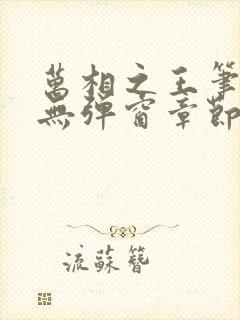 萬相之王筆
無彈窗章節
流蘇簪